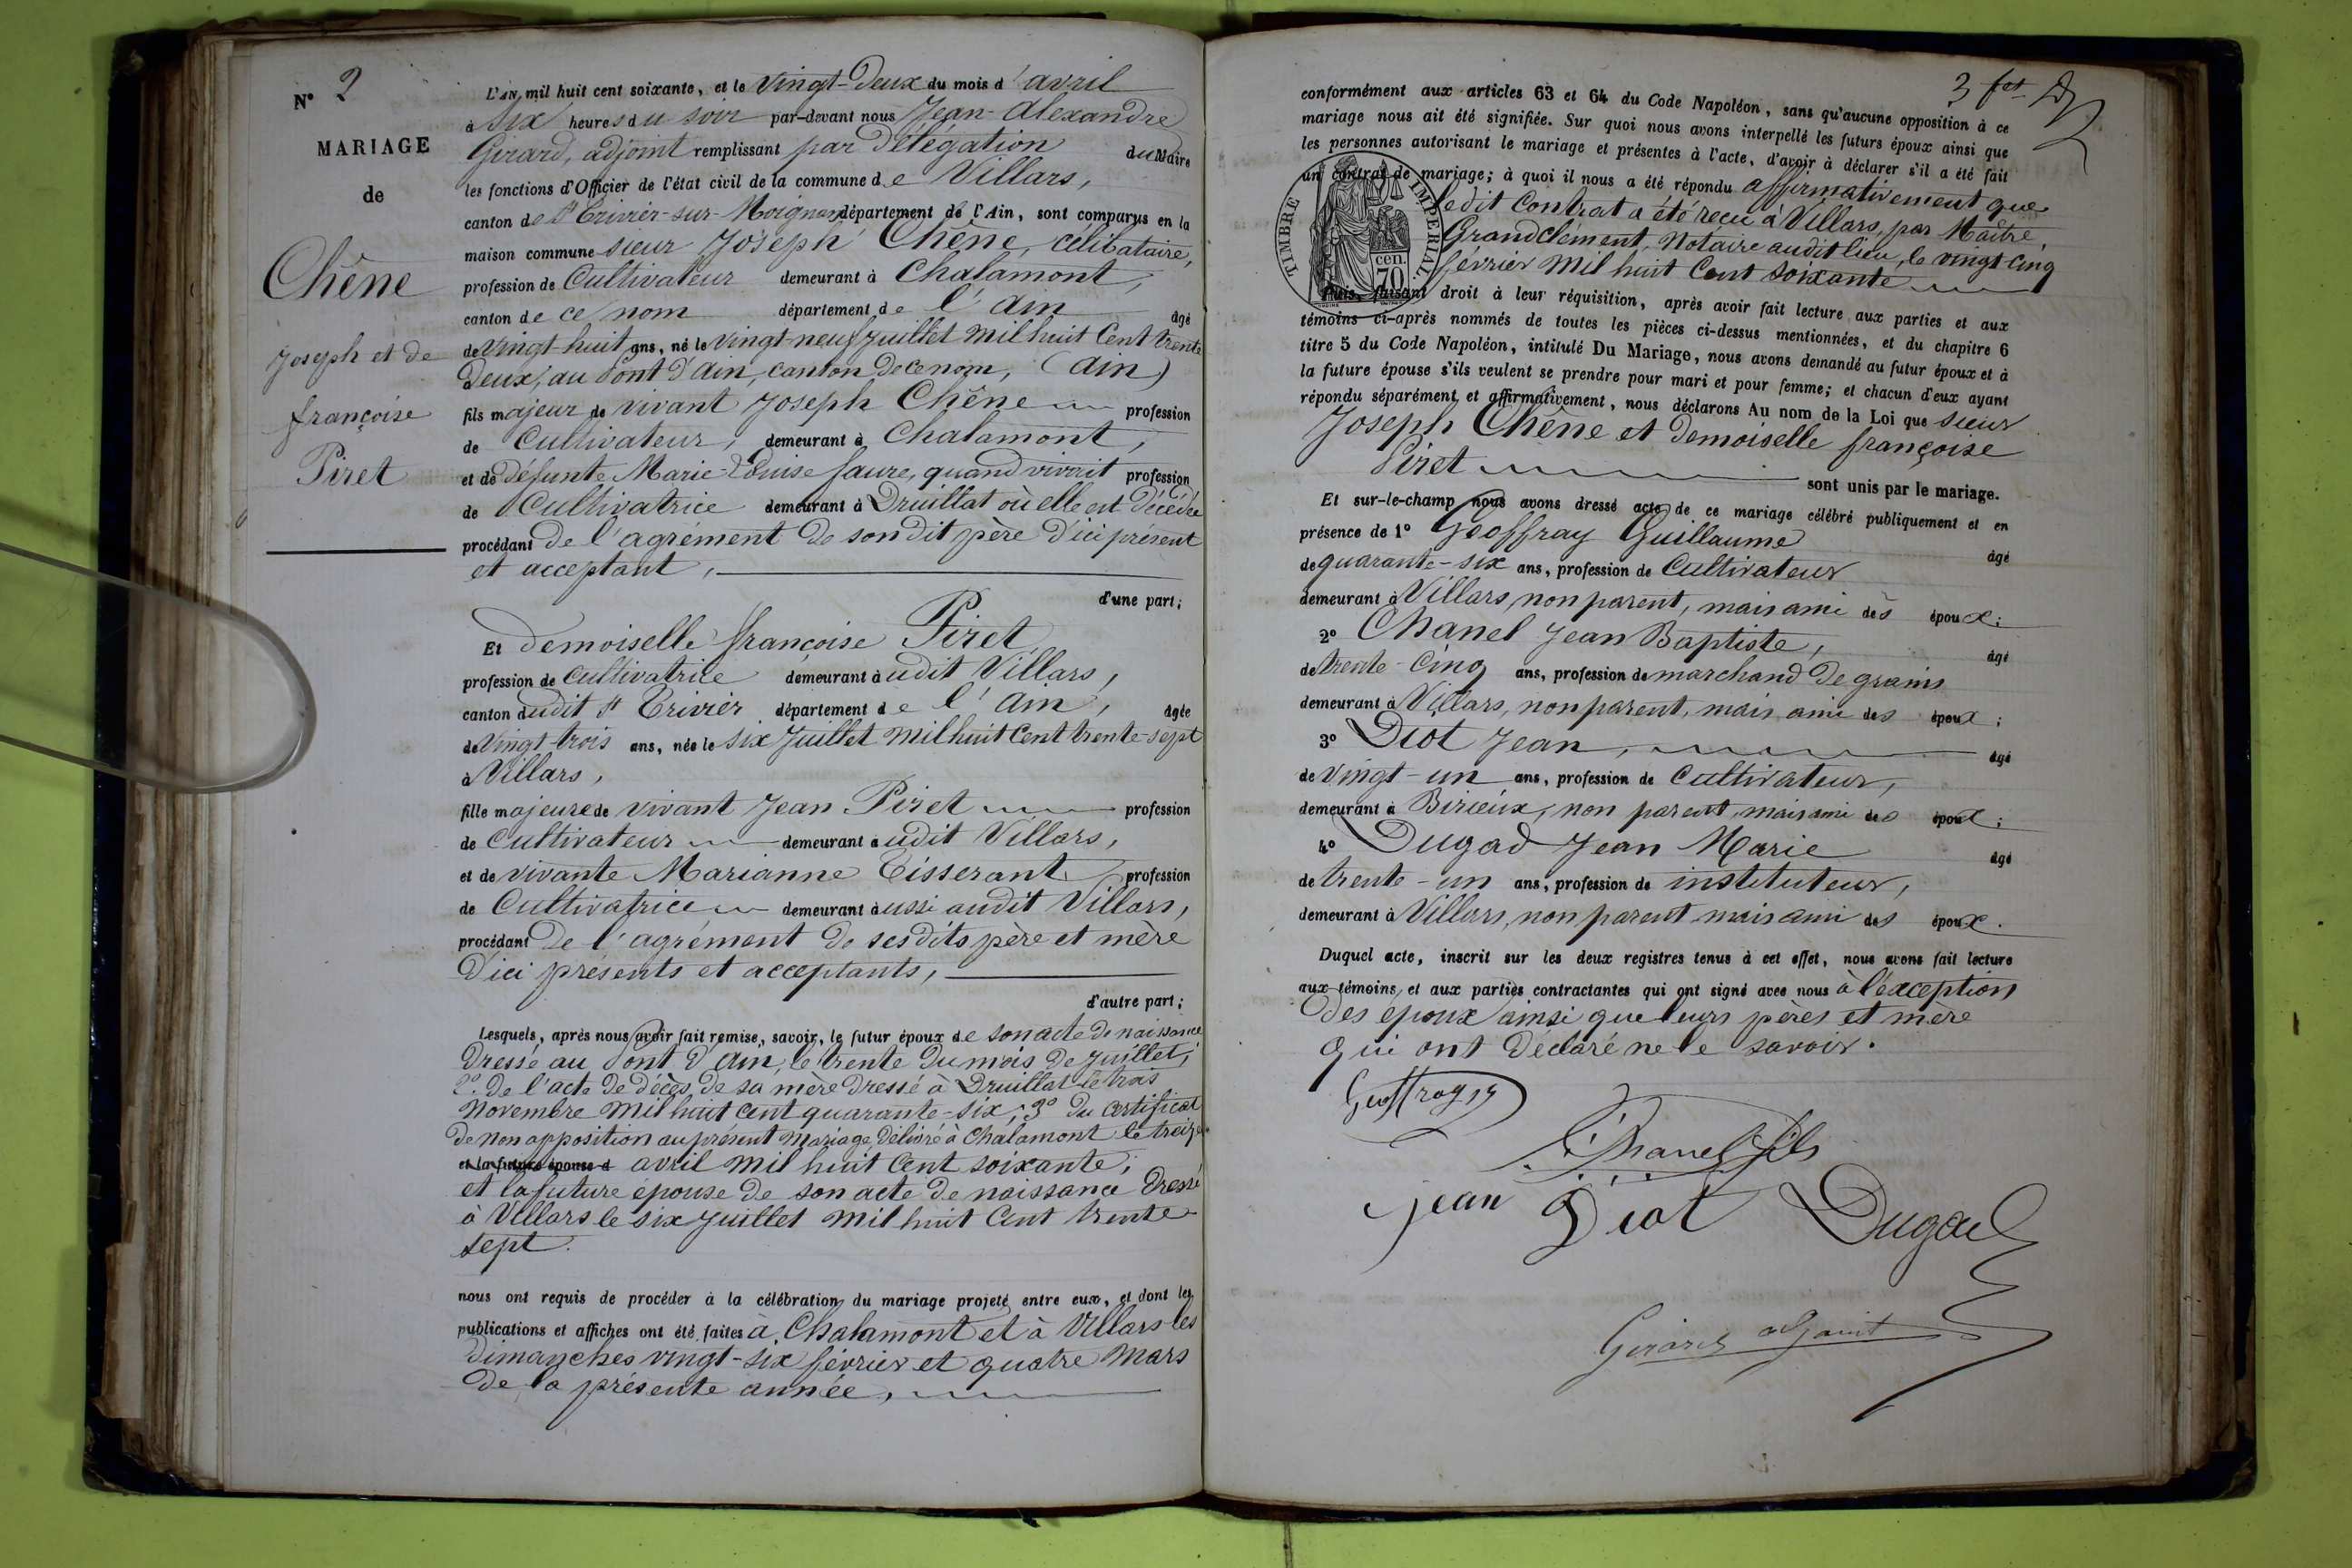 N° 2
MARIAGE
de
Chêne
Joseph et de
françoise
Piret
L'AN mil huit cent soixante, et le Vingt-Deux du mois d'avril
à Six heures du soir par-devant nous Jean-Alexandre
Girard, adjoint remplissant par Délégation du Maire
les fonctions d'Officier de l'état civil de la commune de Villars,
canton de St Trivier-sur-Moignans département de l'Ain, sont comparus en la
maison commune sieur Joseph Chêne, célibataire,
profession de Cultivateur demeurant à Chalamont,
canton de ce nom département de l'Ain âgé
de Vingt-huit ans, né le vingt-neuf Juillet Mil huit Cent trente
Deux, au Pont d'Ain, canton de ce nom, (Ain)
fils majeur de vivant Joseph Chêne profession
de Cultivateur, demeurant à Chalamont,
et de défunte Marie-Louise faure, quand vivait profession
de Cultivatrice demeurant à Druillat où elle est Décédée
procédant De l'agrément de son dit père D'ici présent
et acceptant,
d'une part;
Et Demoiselle françoise Piret
profession de Cultivatrice demeurant audit Villars,
canton dudit St Trivier département de l'Ain, âgée
de Vingt-trois ans, née le six Juillet Mil huit Cent trente-sept
à Villars,
fille majeure de vivant Jean Piret profession
de Cultivateur demeurant audit Villars,
et de vivante Marianne Tisserant profession
de Cultivatrice demeurant aussi audit Villars,
procédant De l'agrément de ses dits père et mère
D'ici présents et acceptants,
d'autre part;
Lesquels, après nous avoir fait remise, savoir, le futur époux de son acte de naissance
Dressé au Pont d'Ain, le trente Du mois de Juillet;
2° De l'acte De décès De sa mère Dressé à Druillat le trois
Novembre Mil huit cent quarante-six; 3° Du Certificat
De Non opposition au présent Mariage Délivré à Chalamont le treize
et la future épouse d avril Mil huit Cent soixante;
et la future épouse de son acte de naissance Dressé
à Villars le six Juillet Mil huit Cent trente
sept.
nous ont requis de procéder à la célébration du mariage projeté entre eux, et dont les
publications et affiches ont été faites à Chalamont et à Villars les
Dimanches vingt-six février et quatre Mars
de la présente année,
3 fet
conformément aux articles 63 et 64 du Code Napoléon, sans qu'aucune opposition à ce
mariage nous ait été signifiée. Sur quoi nous avons interpellé les futurs époux ainsi que
les personnes autorisant le mariage et présentes à l'acte, d'avoir à déclarer s'il a été fait
un contrat de mariage; à quoi il nous a été répondu affirmativement que
ledit Contrat a été reçu à Villars, par Maître
Grandclément, Notaire audit lieu, le vingt Cinq
février Mil huit Cent soixante
TIMBRE IMPERIAL.
70 cen.
Puis, faisant droit à leur réquisition, après avoir fait lecture aux parties et aux
témoins ci-après nommés de toutes les pièces ci-dessus mentionnées, et du chapitre 6
titre 5 du Code Napoléon, intitulé Du Mariage, nous avons demandé au futur époux et à
la future épouse s'ils veulent se prendre pour mari et pour femme; et chacun d'eux ayant
répondu séparément et affirmativement, nous déclarons Au nom de la Loi que sieur
Joseph Chêne et Demoiselle françoise
Piret sont unis par le mariage.
Et sur-le-champ nous avons dressé acte de ce mariage célébré publiquement et en
présence de 1° Geoffray Guillaume âgé
de quarante-six ans, profession de Cultivateur
demeurant à Villars, non parent, mais ami des époux;
2° Chanel Jean Baptiste, âgé
de trente-Cinq ans, profession de marchand De grains
demeurant à Villars, non parent, mais ami des époux;
3° Diot Jean, âgé
de Vingt-un ans, profession de Cultivateur,
demeurant à Birieux, non parent, mais ami des époux;
4° Dugad Jean Marie âgé
de trente-un ans, profession de instituteur,
demeurant à Villars, non parent mais ami des époux.
Duquel acte, inscrit sur les deux registres tenus à cet effet, nous avons fait lecture
aux témoins, et aux parties contractantes qui ont signé avec nous à l'exception
Des époux ainsi que leurs pères et mère
qui ont Déclaré ne le savoir.
Geoffray
Chanel fils
jean Diot Dugad
Girard adjoint